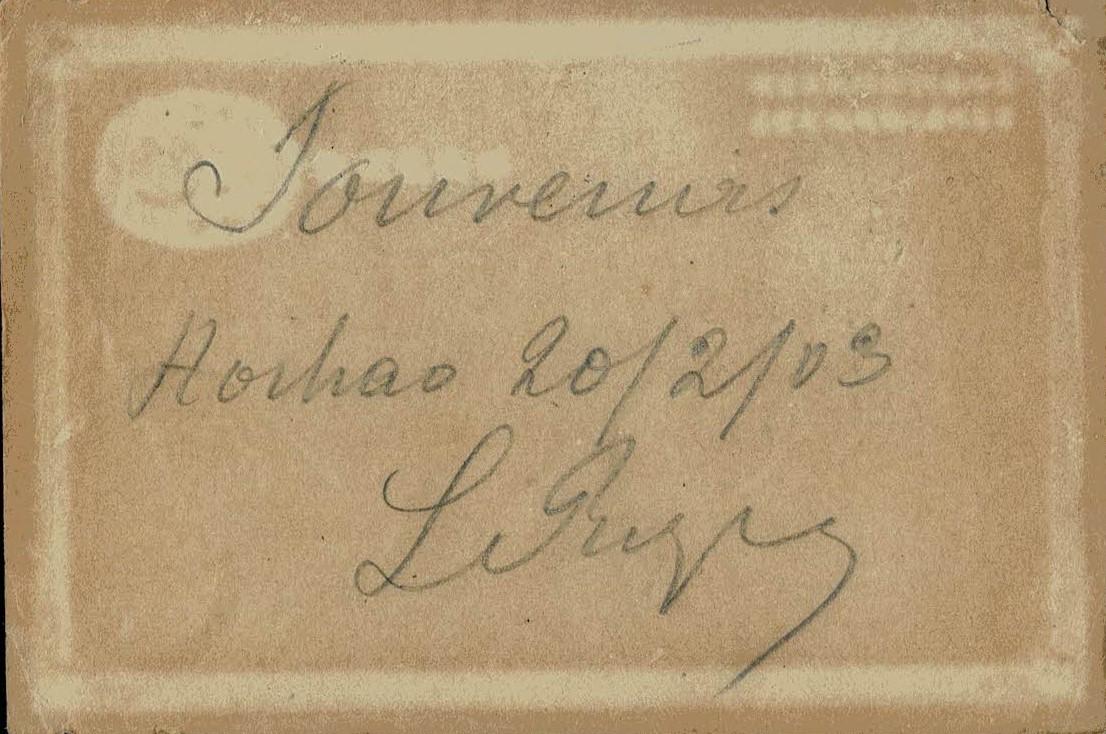 Souvenirs
Hoihao 20/2/03